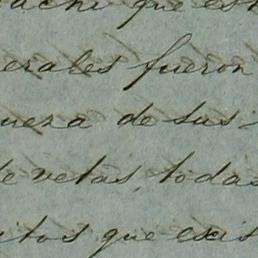 que est
erales fueron
ueza de sus
de vetas, todas
itos que exis